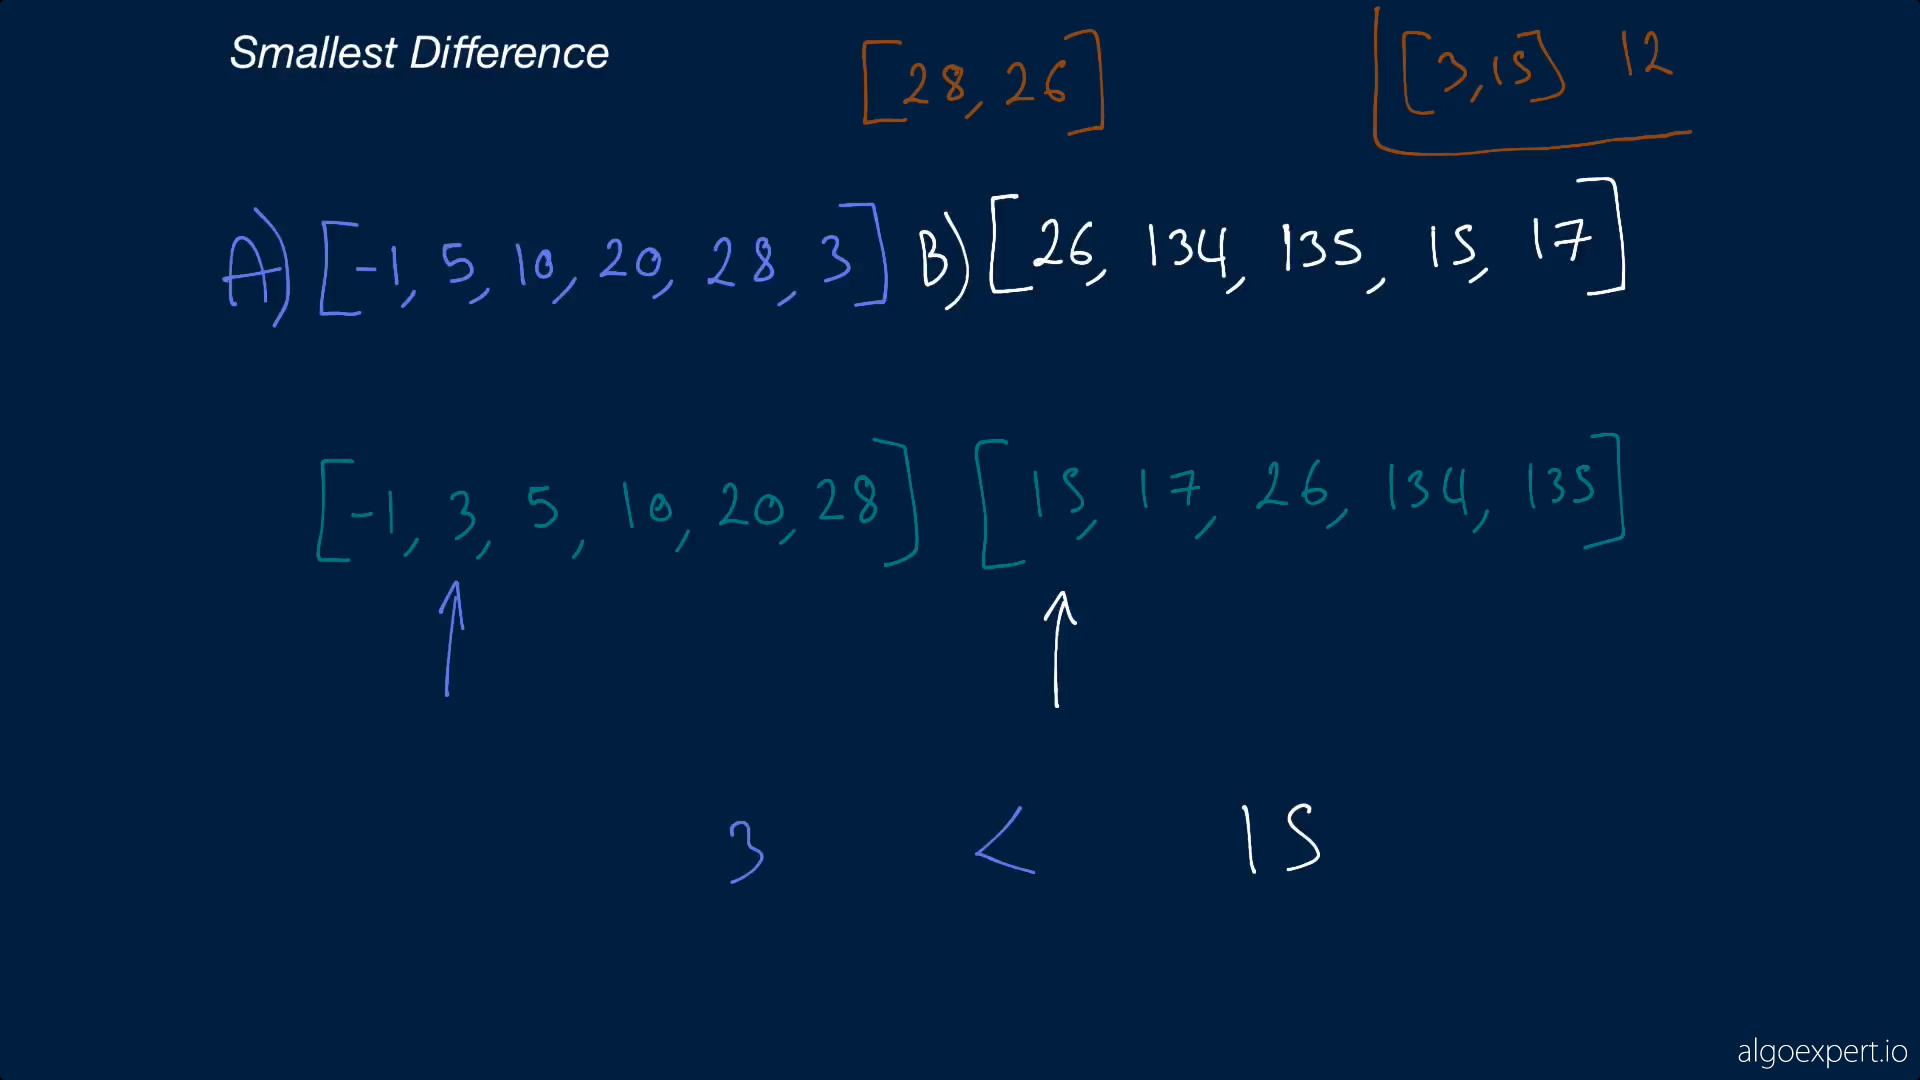 Smallest Difference
[28, 26]
[3, 15] 12
A) [-1, 5, 10, 20, 28, 3] B) [26, 134, 135, 15, 17]
[-1, 3, 5, 10, 20, 28] [15, 17, 26, 134, 135]
3 < 15
algoexpert.io